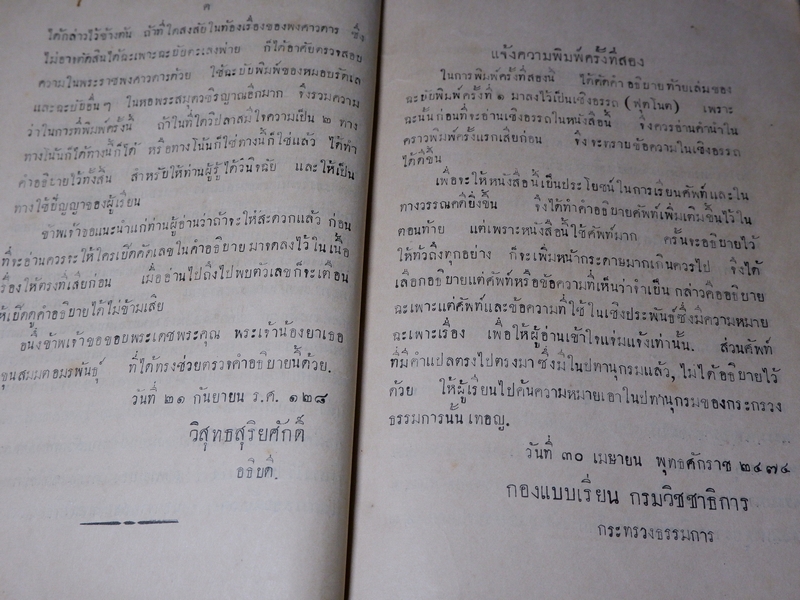 ค
ได้กล่าวไว้ข้างต้น ถ้าที่ใดสงสัยในท้องเรื่องของพงศาวดาร ซึ่ง
ไม่อาจตัดสินได้ฉะเพาะฉะบับตะเลงพ่าย ก็ได้อาศัยตรวจสอบ
ความในพระราชพงศาวดารด้วย ใช้ฉะบับพิมพ์ของหมอบรัดเล
และฉะบับอื่นๆ ในหอพระสมุดวชิรญาณอีกมาก จึงรวมความ
ว่าในการที่พิมพ์ครั้งนี้ ถ้าในที่ใดวิปลาสมีใจความเป็น ๒ ทาง
ทางโน้นก็ได้ทางนี้ก็ได้ หรือทางโน้นก็ใช่ทางนี้ก็ใช่แล้ว ได้ทำ
คำอธิบายไว้ทั้งสิ้น สำหรับให้ท่านผู้รู้ได้วินิจฉัย และให้เป็น
ทางใช้ปัญญาของผู้เรียน
ข้าพเจ้าขอแนะนำแก่ท่านผู้อ่านว่าถ้าจะให้สะดวกแล้ว ก่อน
ที่จะอ่านควรจะให้ใครเขียดคัดเลขในคำอธิบายมาจดลงไว้ในเนื้อ
เรื่องให้ตรงที่เสียก่อน เมื่ออ่านไปถึงไปพบตัวเลขก็จะเตือน
ให้เขียดูคำอธิบายได้ไม่ข้ามเสีย
อนึ่งข้าพเจ้าขอขอบพระเดชพระคุณ พระเจ้าน้องยาเธอ
ขุนสมมตอมรพันธุ์ ที่ได้ทรงช่วยตรวจคำอธิบายนี้ด้วย.
วันที่ ๒๑ กันยายน ร.ศ. ๑๒๘
วิสุทธสุริยศักดิ์
อธิบดี.
แจ้งความพิมพ์ครั้งที่สอง
ในการพิมพ์ครั้งที่สองนี้ ได้คัดคำอธิบายท้ายเล่มของ
ฉะบับพิมพ์ครั้งที่ ๑ มาลงไว้เป็นเชิงอรรถ (ฟุตโนต) เพราะ
ฉะนั้นก่อนที่จะอ่านเชิงอรรถในหนังสือนี้ จึงควรอ่านคำนำใน
คราวพิมพ์ครั้งแรกเสียก่อน จึงจะทราบข้อความในเชิงอรรถ
ได้ดีขึ้น
เพื่อจะให้หนังสือนี้เป็นประโยชน์ในการเรียนศัพท์และใน
ทางวรรณคดียิ่งขึ้น จึงได้ทำคำอธิบายศัพท์เพิ่มเติมขึ้นไว้ใน
ตอนท้าย แต่เพราะหนังสือนี้ใช้ศัพท์มาก ครั้นจะอธิบายไว้
ให้ทั่วถึงทุกอย่าง ก็จะเพิ่มหน้ากระดาษมากเกินควรไป จึงได้
เลือกอธิบายแต่ศัพท์หรือข้อความที่เห็นว่าจำเป็น กล่าวคืออธิบาย
ฉะเพาะแต่ศัพท์และข้อความที่ใช้ในเชิงประพันธ์ซึ่งมีความหมาย
ฉะเพาะเรื่อง เพื่อให้ผู้อ่านเข้าใจแจ่มแจ้งเท่านั้น. ส่วนศัพท์
ที่มีคำแปลตรงไปตรงมาซึ่งมีในปทานุกรมแล้ว, ไม่ได้อธิบายไว้
ด้วย ให้ผู้เรียนไปค้นความหมายเอาในปทานุกรมของกระทรวง
ธรรมการนั้นเทอญ.
วันที่ ๓๐ เมษายน พุทธศักราช ๒๔๗๔
กองแบบเรียน กรมวิชชาธิการ
กระทรวงธรรมการ